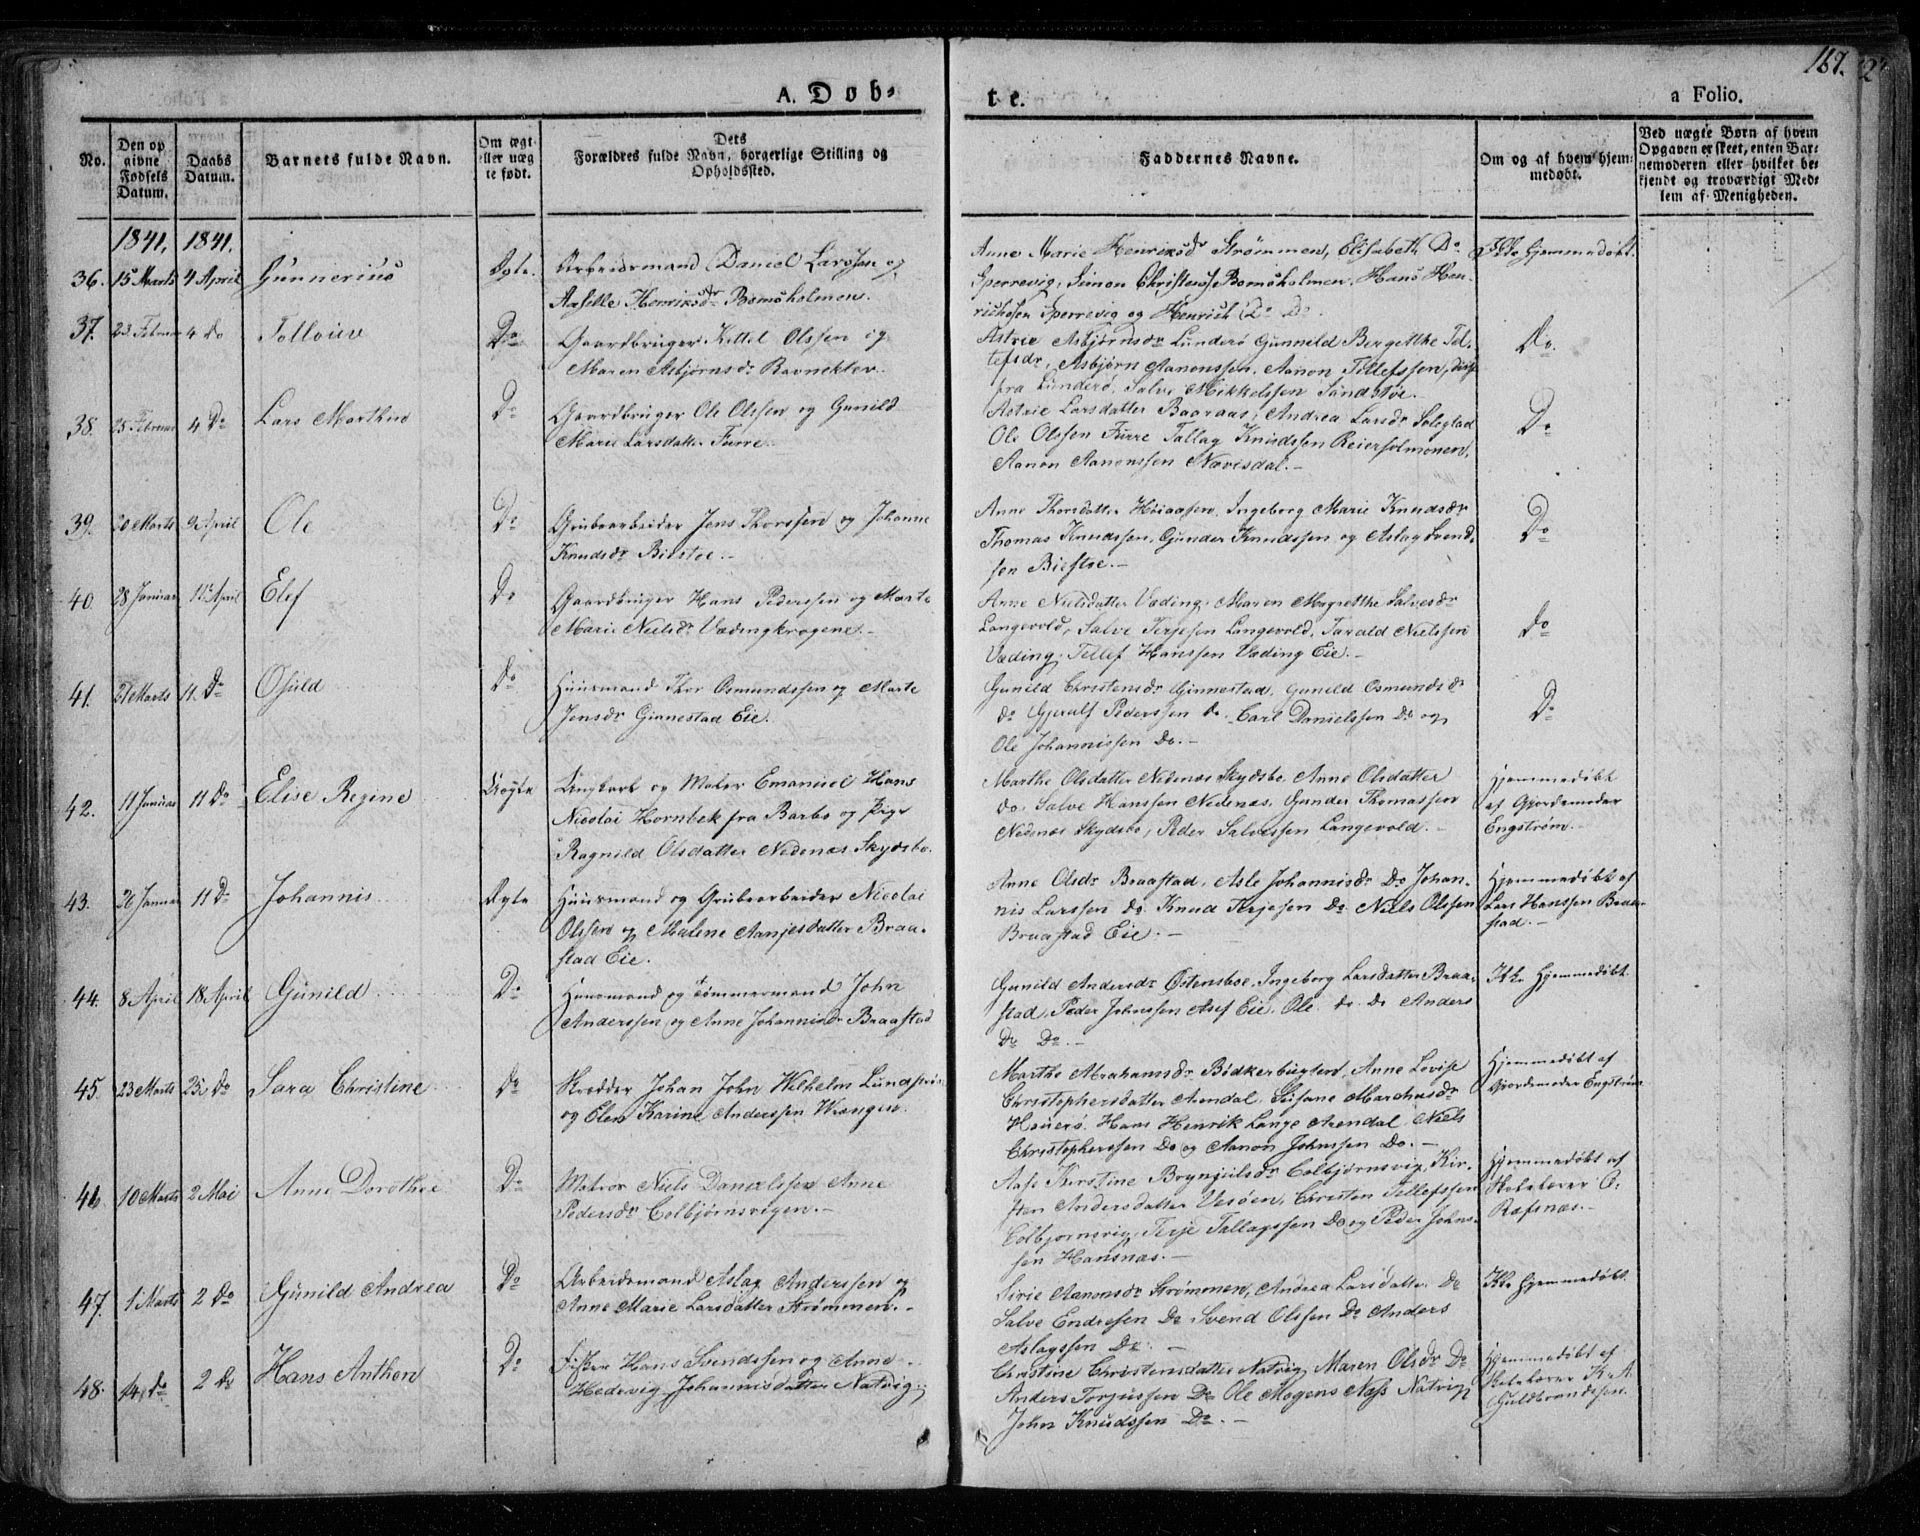 167.
A. Døb-
te.
a Folio.
No.
Den op
givne
Fødsels
Datum.
Daabs
Datum.
Barnets fulde Navn.
Om ægt
eller uæg
te født.
Dets
Forældres fulde Navn, borgerlige Stilling og
Opholdssted.
Faddernes Navne.
Om og af hvem hjem-
medøbt.
Ved uægte Børn af hvem
Opgaven er skeet, enten Bar-
nemoderen eller hvilket be-
kjendt og troværdigt Med-
lem af Menigheden.
1841. 1841.
36. 15 Marts 4 April Gunnerius Ægte. Arbeidsmand Daniel Larssen og
Aselle Henriksdr Bomsholmen.
Anne Marie Henriksdr Strømmen, Elisabeth Do
Sperrevig, Simon Christens. Bomsholmen, Hans Hen-
richsen Sperrevig og Henrich Do Do.
Ikke hjemmedøbt.
37. 23 Februar 4 do Tolloiv Do Gaardbruger Kittel Olssen og
Maren Asbjørnsdr Ravneklev.
Astrie Asbjørnsdr Lunderø Gunnild Bergitthe Tel-
lefsdr, Asbjørn Aanonssen, Aanon Tellefssen,
fra Lunderø, Salve Mikkelssen Sandstøe.
Do.
38. 25 Februar 4 Do Lars Marthin Do Gaardbruger Ole Olssen og Gunild
Marie Larsdatter Furre.
Astrie Larsdatter Baaraas, Andrea Larsdr Solegtad
Ole Olssen Furre Tallag Knudssen Reiersølmonen,
Aanon Aanonssen Nævisdal.-
Do
39. 20 Marts 9 April Ole Do Grubearbeider Jens Thorssen og Johanne
Knudsdr Biestøe.-
Anne Thorsdatter Høiaasen, Ingeborg Marie Knudsdr
Thomas Knudssen, Gunder Knudssen og Aslag Svend-
sen Biestøe.-
Do
40. 28 Januar 11 April Elef Do Gaardbruger Hans Pederssen og Marte
Marie Nielsdr Vædingkrogene.-
Anne Nielsdatter Væding, Maren Magretthe Salvesdr
Langevold, Salve Terjesen Langevold, Tarald Nielssen
Væding, Tellef Hanssen Væding Eie.-
Do
41. 21 Marts 11. Do Osuld Do Huusmand Thor Osmundssen og Marte
Jensdr Ginnestad Eie.
Gunild Christensdr Ginnestad, Gunild Osmundsdr
do Gjerulf Pederssen do, Carl Danielssen do og
Ole Johannissen Do.-
Do
42. 11 Januar 11 Do Elise Regine Uægte Ungkarl og Maler Emanuel Hans
Nicolai Hornbek fra Barbo og Pige
Ragnild Olsdatter Nedenæs Skydsbo.
Marthe Olsdatter Nedenæs Skydsbo, Anne Olsdatter
do, Salve Hanssen Nedenæs, Gunder Thomassen
Nedenæs Skydsbo, Peder Salvessen Langevold.-
Hjemmedøbt
af Gjordemoder
Engstrøm.-
43. 26 Januar 11 Do Johannis Ægte Huusmand og Grubearbeider Nicolai
Olssen og Malene Aanjesdatter Braa-
stad Eie.
Anne Olsdr Braastad, Asle Johannisdr Do Johan-
nis Larssen do, Knud Terjesen Do Niels Olssen
Braastad Eie.-
Hjemmedøbt af
Lars Hanssen Braa-
stad.-
44. 8 April 18 April Gunild Do Huusmand og Tømmermand John
Anderssen og Anne Johannisdr Braastad
Gunild Andersdr Østensboe, Ingeborg Larsdatter Braa-
stad, Peder Johnssen Asef Eie, Ole do Do Anders
Do Do.-
Ikke Hjemmedøbt.
45. 23 Marts 25 Do Sara Christine Do Skrædder Johan John Wilhelm Lundstrøm
og Elen Karine Anderssen Wrængen.
Marthe Abrahamsdr Bødkerbugten, Anne Lovise
Christophersdatter Arendal, Susane Marchusdr
Haverø, Hans Henrik Lange Arendal, Niels
Christopherssen Do og Aanon Johnssen Do.-
Hjemmedøbt af
Gjordemoder Engstrøm
46. 10 Marts 2 Mai Anne Dorothea Do Matros Niels Danielssen Anne
Pedersdr Colbjørnsvigen.-
Aase Kirstine Brynjulsdr Colbjørnsvig, Kir-
sten Andersdatter Vesøen, Christen Tellefssen
Colbjørnsvig, Terje Tallagssen Do og Peder Johns-
sen Hansnæs.-
Hjemmedøbt af
Skolelærer O.
Ræfsnæs.-
47. 1 Marts 2 Do Gunild Andrea Do Arbeidsmand Aslag Anderssen og
Anne Marie Larsdatter Strømmen.-
Sirie Aanonsdr Strømmen, Andrea Larsdatter Do
Salve Endresen Do Svend Olssen Do Anders
Aslagssen Do.-
Ikke hjemmedøbt.
48. 14 Do 2 Do Hans Anthon Do Fisker Hans Svendssen og Anne
Hedevig Johannisdatter Natvig.
Christine Christensdatter Natvig, Maren Olsdr Do
Anders Torjussen Do Ole Mogens Næss Natvig
John Knudssen Do.-
Hjemmedøbt af
Skolelærer K. A.
Guldbrandssen.